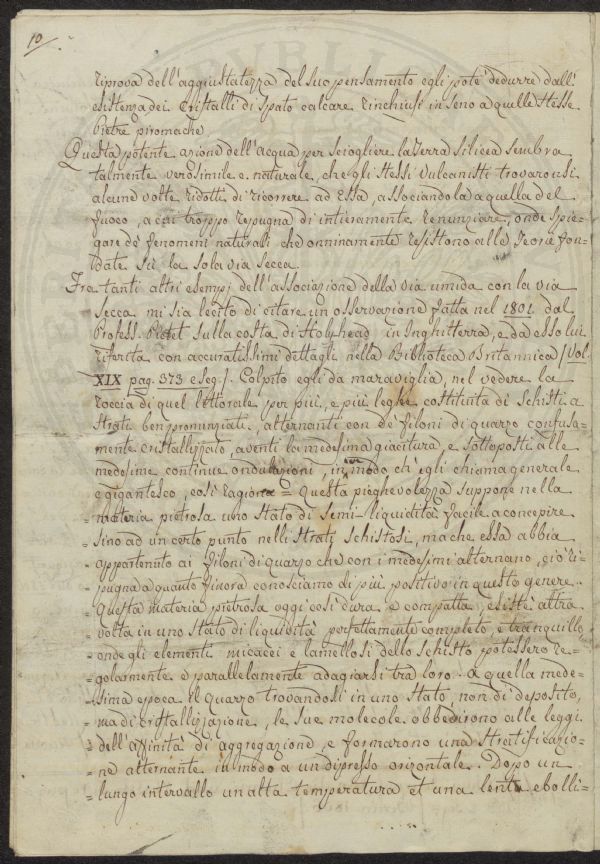 10
riprova dell'aggiustatezza del suo pensamento egli potè dedurre dall'
esistenza dei cristalli di spato calcare rinchiusi in seno a quelle stesse
Pietre piromache
Questa potente azione dell'acqua per sciogliere la Terra silicea sembra
talmente verosimile e naturale, che gli stessi Vulcanisti trovaronsi
alcune volte ridotti di ricorrere ad Essa, associandola a quella del
fuoco, a cui troppo repugna di intieramente renunziare, onde spie=
gare de' fenomeni naturali che onninamente resistono alle Teorie fon=
date sù la sola via secca.
Fra tanti altri esempj dell'associazione della via umida con la via
secca mi sia lecito di citare un osservazione fatta nel 1801 dal
Profess. Pictet sulla costa di Holyhead in Inghilterra, e da esso lui
riferita con accuratissimi dettagli nella Biblioteca Britannica /Vol.
XIX pag. 373 e seg./. Colpito egli da maraviglia, nel vedere la
roccia di quel littorale per più, e più leghe costituita di Schisti a
strati ben pronunziati, alternanti con de' filoni di quarzo confusa=
mente cristallizzato, aventi la medesima giacitura, e sottoposti alle
medesime continue ondulazioni, in modo ch'egli chiama generale
e gigantesco, così ragiona = Questa pieghevolezza suppone nella
= materia pietrosa uno stato di semi-liquidità facile a concepire
= sino ad un certo punto nelli strati schistosi, ma che essa abbia
= appartenuto ai filoni di quarzo che con i medesimi alternano, ciò ri=
= pugna a quanto finora conosciamo di più positivo in questo genere.
= Questa materia pietrosa oggi così dura, e compatta, esistè altra
= volta in uno stato di liquidità perfettamente completo, e tranquillo,
= onde gli elementi micacei e lamellosi dello Schisto potessero re=
= golarmente e parallelamente adagiarsi tra loro. A quella mede=
= sima epoca il quarzo trovandosi in uno stato, non di deposito,
= ma di cristallizzazione, le sue molecole obbedirono alle leggi
= dell'affinità di aggregazione, e formarono una stratificazio=
= ne alternante in modo a un dipresso orizontale. Dopo un
= lungo intervallo un alta temperatura et una lenta ebolli=